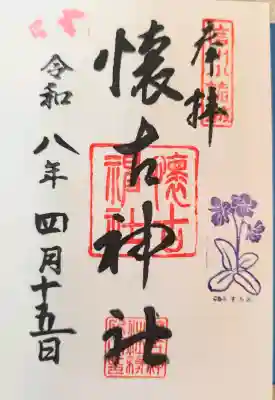 奉拝
懐古神社
懐古
神社
令和八年四月十五日